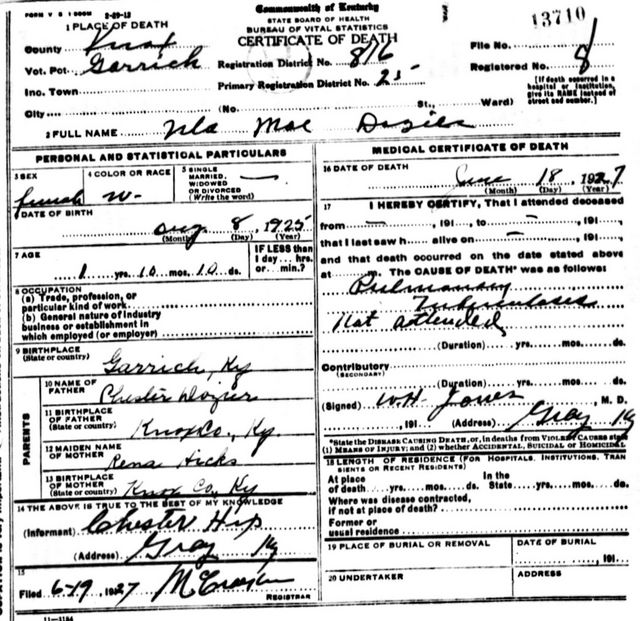 FORM V S 1 500M 2-29-12
Commonwealth of Kentucky
STATE BOARD OF HEALTH
BUREAU OF VITAL STATISTICS
CERTIFICATE OF DEATH
13710
1 PLACE OF DEATH
County Knox
Vot. Pct. Garrich
Inc. Town
City
Registration District No. 876
Primary Registration District No. 25
File No.
Registered No. 8
[If death occurred in a hospital or institution, give its NAME instead of street and number.]
(No. St., Ward)
2 FULL NAME Ila Mae Dozier
PERSONAL AND STATISTICAL PARTICULARS
3 SEX female
4 COLOR OR RACE W-
5 SINGLE MARRIED, WIDOWED OR DIVORCED (Write the word) —
6 DATE OF BIRTH Aug 8, 1925
(Month) (Day) (Year)
7 AGE 1 yrs. 10 mos. 10 ds.
IF LESS than 1 day ... hrs. or ... min.?
8 OCCUPATION
(a) Trade, profession, or particular kind of work
(b) General nature of industry business or establishment in which employed (or employer)
9 BIRTHPLACE (State or country) Garrich, Ky
PARENTS
10 NAME OF FATHER Chester Dozier
11 BIRTHPLACE OF FATHER (State or country) Knox Co., Ky
12 MAIDEN NAME OF MOTHER Rena Hicks
13 BIRTHPLACE OF MOTHER (State or country) Knox Co, Ky
14 THE ABOVE IS TRUE TO THE BEST OF MY KNOWLEDGE
(Informant) Chester Hip
(Address) Gray Ky
15
Filed 6-19, 1927
REGISTRAR
11-3184
MEDICAL CERTIFICATE OF DEATH
16 DATE OF DEATH June 18, 1927
(Month) (Day) (Year)
17 I HEREBY CERTIFY, That I attended deceased
from —, 191, to —, 191,
that I last saw h alive on —, 191,
and that death occurred on the date stated above
at m. The CAUSE OF DEATH* was as follows:
Pulmonary
Tuberculosis
Not attended
(Duration) yrs. mos. ds.
Contributory
(SECONDARY)
(Duration) yrs. mos. ds.
(Signed) W.H. Jones, M. D.
, 191 (Address) Gray Ky
*State the DISEASE CAUSING DEATH, or, in deaths from VIOLENT CAUSES state
(1) MEANS OF INJURY; and (2) whether ACCIDENTAL, SUICIDAL or HOMICIDAL
18 LENGTH OF RESIDENCE (FOR HOSPITALS, INSTITUTIONS, TRANSIENTS OR RECENT RESIDENTS)
At place of death yrs. mos. ds. In the State yrs. mos. ds.
Where was disease contracted, if not at place of death?
Former or usual residence
19 PLACE OF BURIAL OR REMOVAL
DATE OF BURIAL
, 191
20 UNDERTAKER
ADDRESS